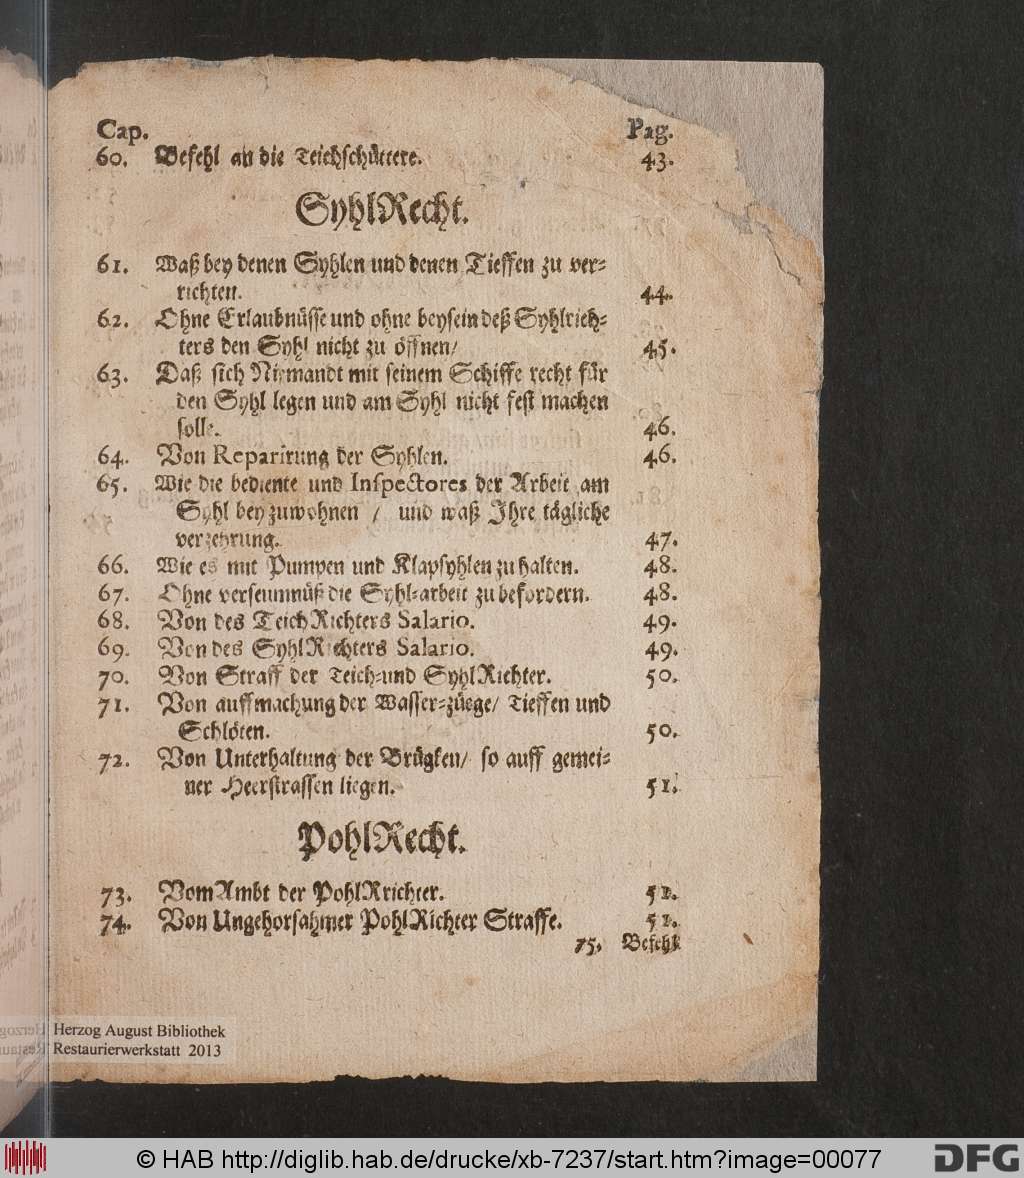 Cap. Pag.
60. Befehl an die Teichschüttere. 43.
SyhlRecht.
61. Waß bey denen Syhlen und denen Tieffen zu ver-
richten. 44.
62. Ohne Erlaubnüsse und ohne beysein deß Syhlrich-
ters den Syhl nicht zu öffnen/ 45.
63. Daß sich Niemandt mit seinem Schiffe recht für
den Syhl legen und am Syhl nicht fest machen
solle. 46.
64. Von Reparirung der Syhlen. 46.
65. Wie die bediente und Inspectores der Arbeit am
Syhl beyzuwohnen / und waß Ihre tägliche
verzehrung. 47.
66. Wie es mit Pumpen und Klapsyhlen zu halten. 48.
67. Ohne verseumnüß die Syhl-arbeit zu befordern. 48.
68. Von des TeichRichters Salario. 49.
69. Von des SyhlRichters Salario. 49.
70. Von Straff der Teich-und SyhlRichter. 50.
71. Von auffmachung der Wasser-züege/ Tieffen und
Schlöten. 50.
72. Von Unterhaltung der Brügken/ so auff gemei-
ner Heerstrassen liegen. 51.
PohlRecht.
73. Vom Ambt der PohlRrichter. 51.
74. Von Ungehorsahmer PohlRichter Straffe. 51.
75. Befehl
Herzog August Bibliothek
Restaurierwerkstatt 2013
© HAB http://diglib.hab.de/drucke/xb-7237/start.htm?image=00077
DFG